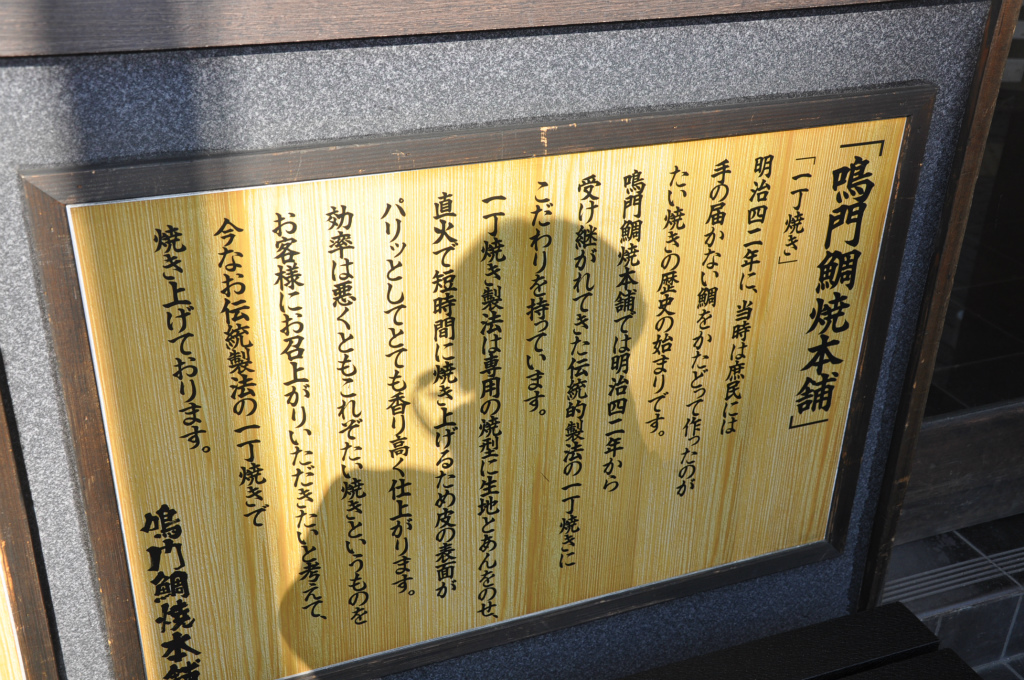 「鳴門鯛焼本舗」
「一丁焼き」
明治四二年に、当時は庶民には
手の届かない鯛をかたどって作ったのが
たい焼きの歴史の始まりです。
鳴門鯛焼本舗では明治四二年から
受け継がれてきた伝統的製法の一丁焼きに
こだわりを持っています。
一丁焼き製法は専用の焼型に生地とあんをのせ、
直火で短時間に焼き上げるため皮の表面が
パリッとしてとても香り高く仕上がります。
効率は悪くともこれぞたい焼きというものを
お客様にお召上がりいただきたいと考えて、
今なお伝統製法の一丁焼きで
焼き上げております。
鳴門鯛焼本舗